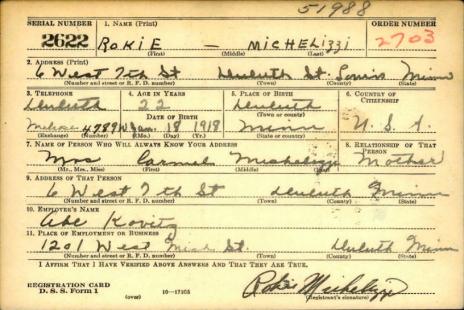 51988
SERIAL NUMBER 1. NAME (Print) ORDER NUMBER
2622 ROKIE — MICHELIZZI 2703
(First) (Middle) (Last)
2. ADDRESS (Print)
6 West 7th St Duluth St. Louis Minn
(Number and street or R. F. D. number) (Town) (County) (State)
3. TELEPHONE 4. AGE IN YEARS 5. PLACE OF BIRTH 6. COUNTRY OF CITIZENSHIP
Duluth 22 Duluth
DATE OF BIRTH (Town or county)
Melrose 4789W Jan. 18 1918 Minn U. S. A.
(Exchange) (Number) (Mo.) (Day) (Yr.) (State or country)
7. NAME OF PERSON WHO WILL ALWAYS KNOW YOUR ADDRESS 8. RELATIONSHIP OF THAT PERSON
Mrs Carmel Michelizzi Mother
(Mr., Mrs., Miss) (First) (Middle) (Last)
9. ADDRESS OF THAT PERSON
6 West 7th St Duluth Minn
(Number and street or R. F. D. number) (Town) (County) (State)
10. EMPLOYER'S NAME
Abe Kovitz
11. PLACE OF EMPLOYMENT OR BUSINESS
1201 West Mich St. Duluth Minn
(Number and street or R. F. D. number) (Town) (County) (State)
I AFFIRM THAT I HAVE VERIFIED ABOVE ANSWERS AND THAT THEY ARE TRUE.
REGISTRATION CARD
D. S. S. Form 1 (over) 16—17105 Rokie Michelizzi
(Registrant's signature)